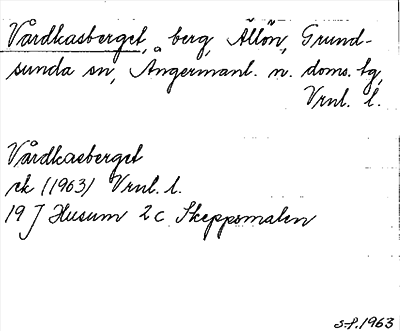 Vårdkasberget, berg, Ällön, Grund-
sunda sn, Ångermanl. n. doms. tg,
Vrnl. l.
Vårdkasberget
ek (1963) Vrnl. l.
19 J Husum 2c Skeppsmalen
s-f. 1963